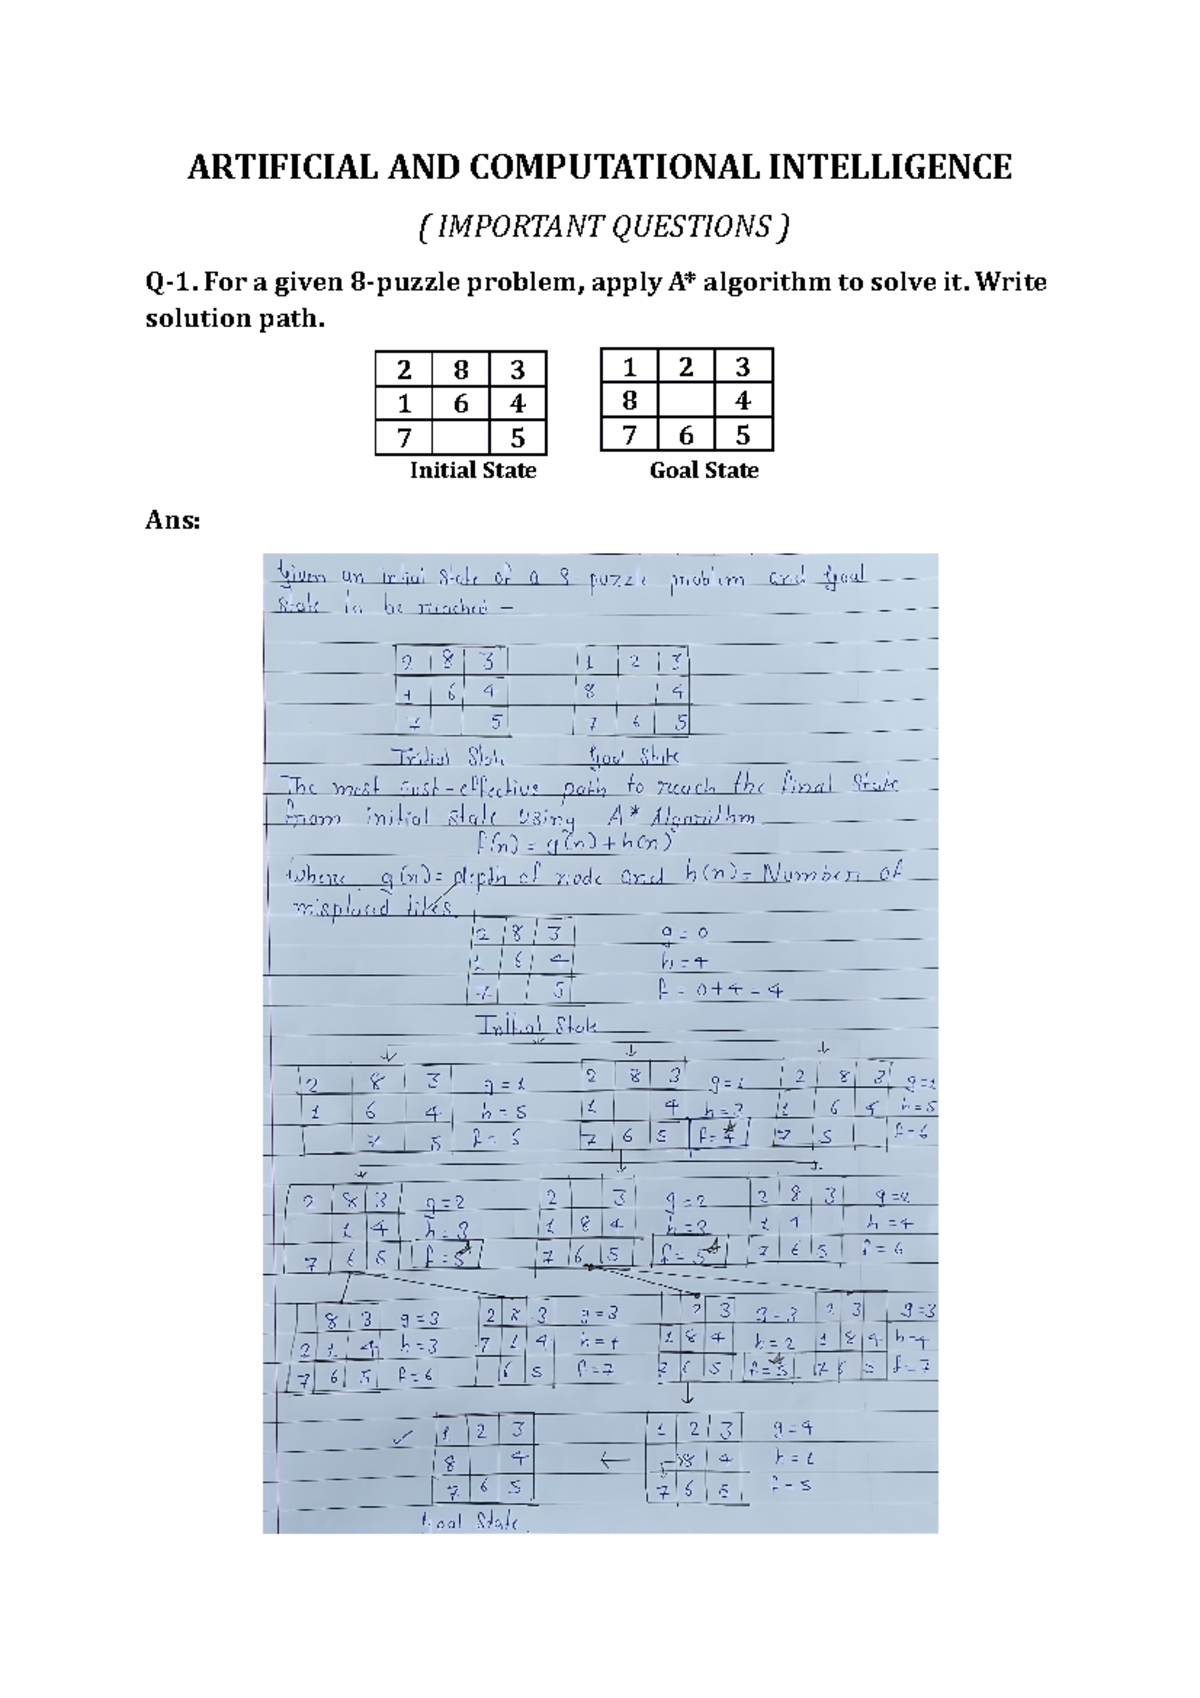 ARTIFICIAL AND COMPUTATIONAL INTELLIGENCE
( IMPORTANT QUESTIONS )
Q-1. For a given 8-puzzle problem, apply A* algorithm to solve it. Write
solution path.
2 8 3 1 2 3
1 6 4 8 4
7 5 7 6 5
Initial State Goal State
Ans:
Given an initial State of a 8-puzzle problem and Goal
State to be reached -
2 8 3 1 2 3
1 6 4 8 4
7 5 7 6 5
Initial State Goal State
The most cost-effective path to reach the final State
from initial state using A* Algorithm.
f(n) = g(n) + h(n)
Where g(n) = depth of node and h(n) = Number of
misplaced tiles.
2 8 3 g = 0
1 6 4 h = 4
7 5 f = 0+4 = 4
Initial State
2 8 3 g = 1 2 8 3 g=1 2 8 3 g=1
1 6 4 h = 5 1 4 h=3 1 6 4 h=5
7 5 7 6 5 f=4 7 5 f=6
2 8 3 g=2 2 3 g=2 2 8 3 g=2
1 4 h=3 1 8 4 h=3 1 4 h=4
7 6 5 f=5 7 6 5 f=5 7 6 5 f=6
8 3 g=3 2 8 3 g=3 2 3 g=3 2 3 g=3
2 1 4 h=3 7 1 4 h=4 1 8 4 h=2 1 8 4 h=4
7 6 5 f=6 6 5 f=7 7 6 5 f=5 7 6 5 f=7
1 2 3 1 2 3 g=4
8 4 8 4 h=1
7 6 5 7 6 5 f=5
Goal State